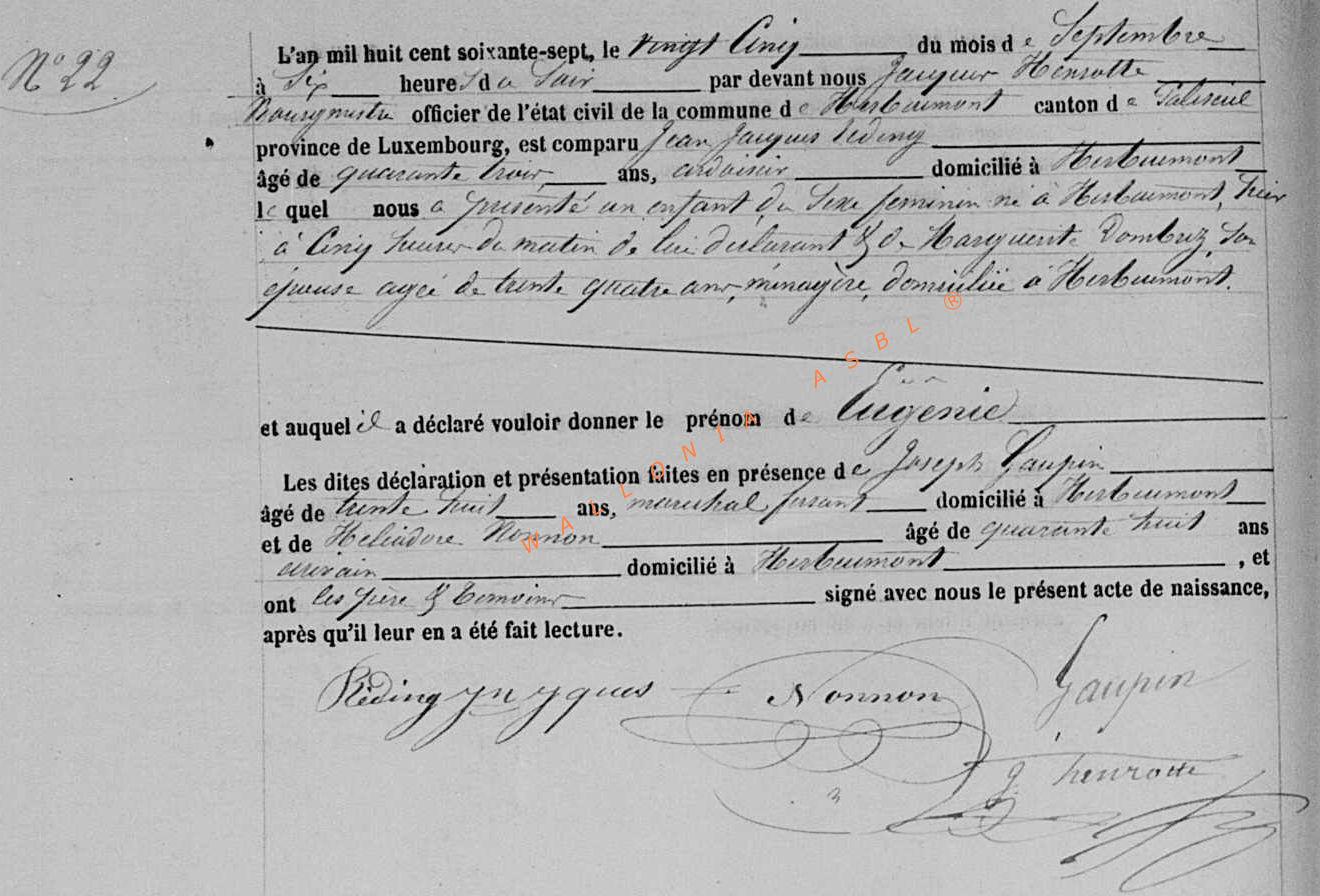 N° 22
L'an mil huit cent soixante-sept, le vingt Cinq du mois de Septembre
à Six heures du Soir par devant nous Jacques Henrotte
Bourgmestre officier de l'état civil de la commune de Herbeumont canton de Paliseul
province de Luxembourg, est comparu Jean Jacques Réding
âgé de quarante trois ans, ardoisier domicilié à Herbeumont
lequel nous a présenté un enfant du Sexe feminin né à Herbeumont, hier
à Cinq heures du matin de lui déclarant & de Marguerite Dombuz, Son
épouse agée de trente quatre ans, ménagère, domiciliée à Herbeumont.
et auquel il a déclaré vouloir donner le prénom de Eugénie
Les dites déclaration et présentation faites en présence de Joseph Gaupin
âgé de trente huit ans, marechal ferant domicilié à Herbeumont
et de Héliodore Nonnon âgé de quarante huit ans
domicilié à Herbeumont, et
ont les père & Temoins signé avec nous le présent acte de naissance,
après qu'il leur en a été fait lecture.
Réding jn jques Nonnon Gaupin
J henrotte
WALLONIA ASBL ®